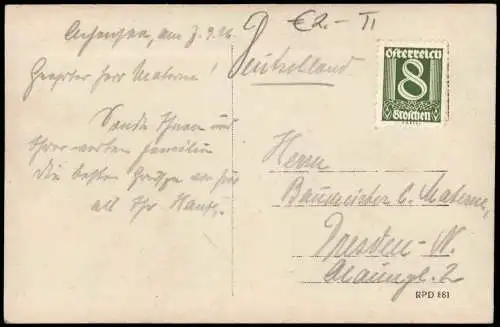 Achensee, am 7.9.26
Geehrter Herr Materne!
Sende Ihnen und
Ihrer werten Familie
die besten Grüße
all Ihr Hans
€2.- II
Deutschland
Österreich
8
Groschen
Herrn
Baumeister C. Materne,
Dresden-N.
Alaungl. 2
RPD 861